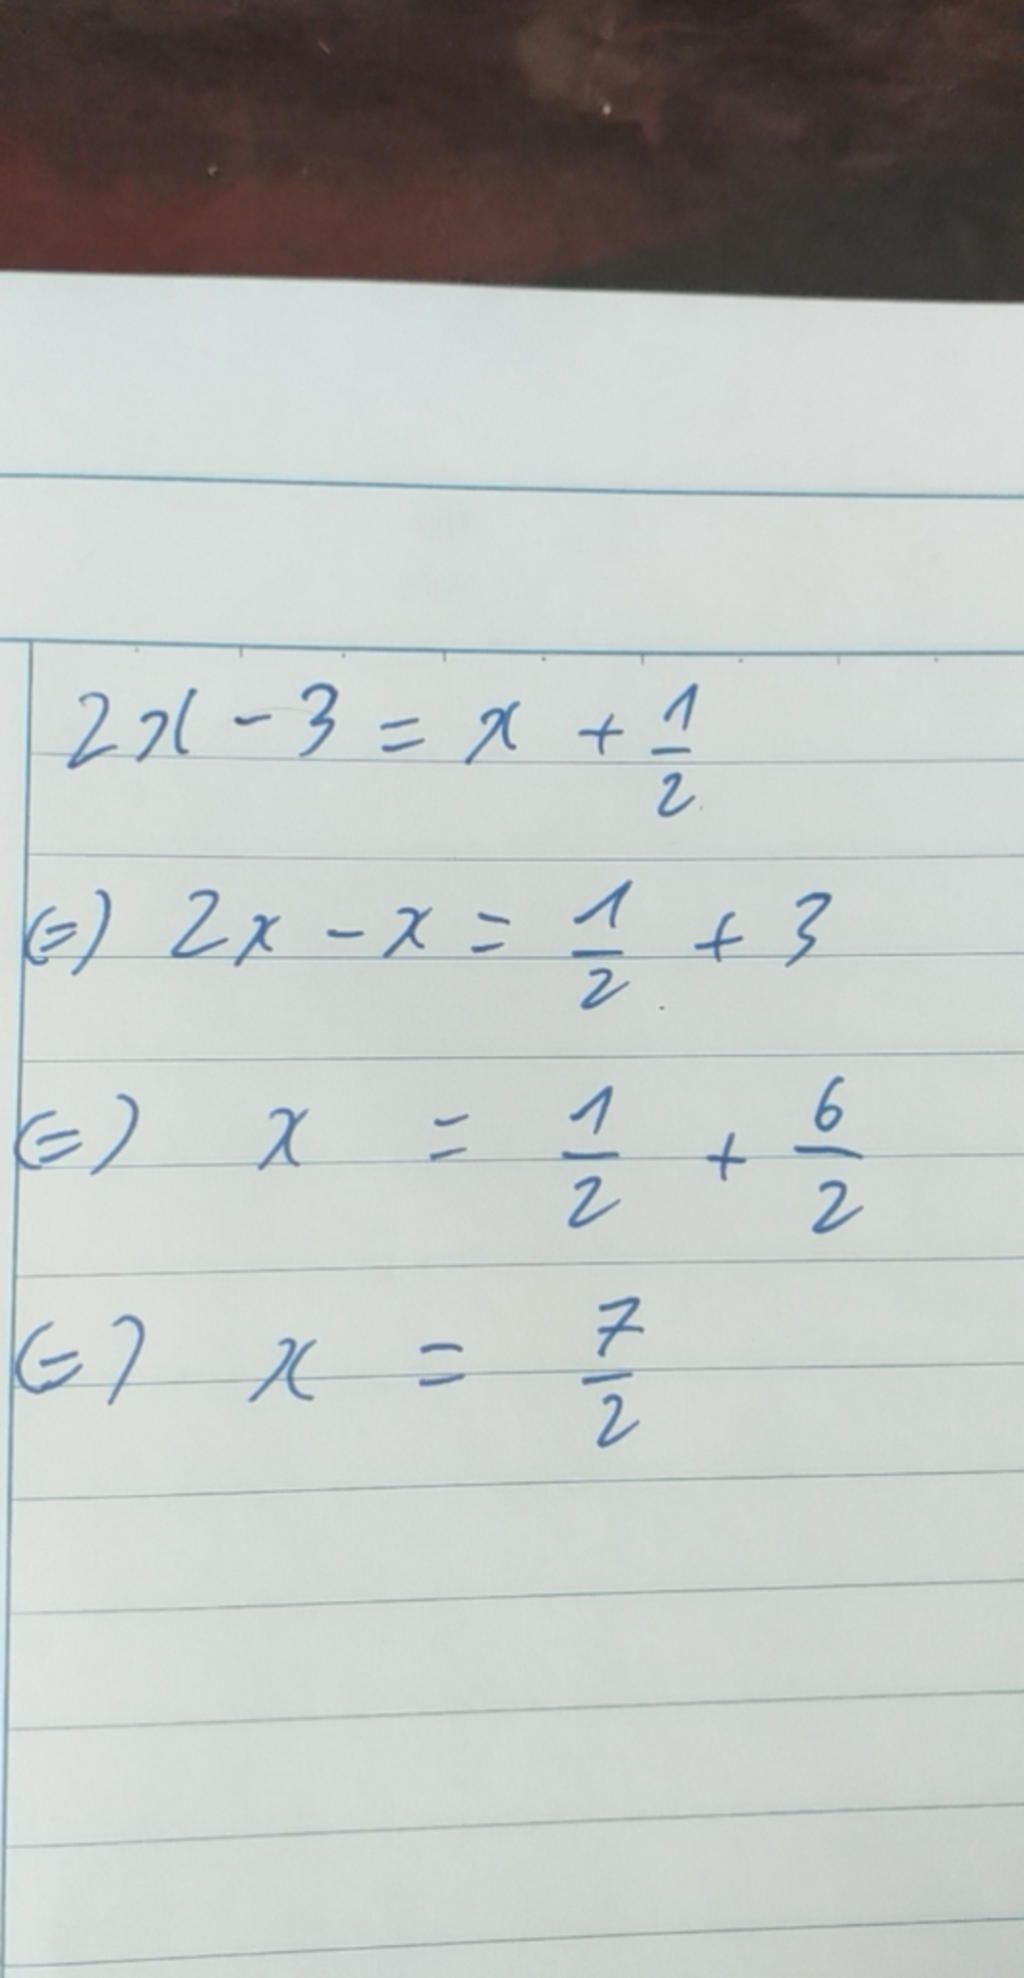 2x - 3 = x + 1/2
<=> 2x - x = 1/2 + 3
<=> x = 1/2 + 6/2
<=> x = 7/2